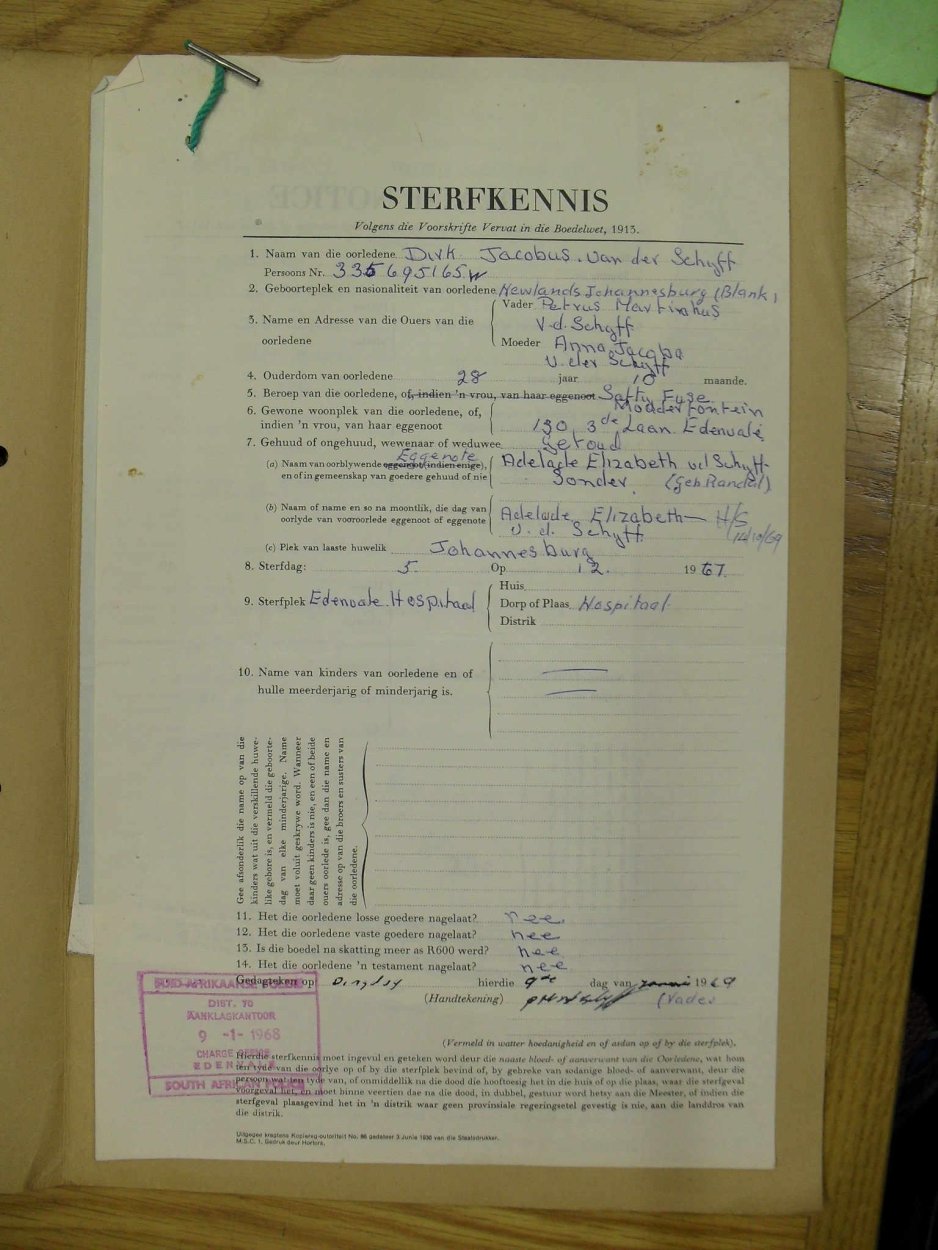 STERFKENNIS
Volgens die Voorskrifte Vervat in die Boedelwet, 1913.
1. Naam van die oorledene Dirk Jacobus. van der Schyff
Persoons Nr. 335695165 W
2. Geboorteplek en nasionaliteit van oorledene Newlands Johannesburg (Blank)
3. Name en Adresse van die Ouers van die oorledene
Vader Petrus Marthinus
v.d. Schyff
Moeder Anna Jacoba
v. der Schyff
4. Ouderdom van oorledene 28 jaar 10 maande.
5. Beroep van die oorledene, of, indien 'n vrou, van haar eggenoot Safty Fuse
Modderfontein
6. Gewone woonplek van die oorledene, of, indien 'n vrou, van haar eggenoot
130, 3de Laan Edenvale
7. Gehuud of ongehuud, wewenaar of weduwee
Eggenote
(a) Naam van oorblywende eggenoot (indien enige), en of in gemeenskap van goedere gehuud of nie
Adelagde Elizabeth vd Schyff
Sonder. (Geb Randal)
(b) Naam of name en so na moontlik, die dag van oorlyde van vooroorlede eggenoot of eggenote
Adelade Elizabeth H/S
v. d. Schyff 14/10/69
(c) Plek van laaste huwelik Johannesburg
8. Sterfdag: 5. Op 12. 1967
9. Sterfplek Edenvale. Hospitaal
Huis
Dorp of Plaas Hospitaal
Distrik
10. Name van kinders van oorledene en of hulle meerderjarig of minderjarig is.
Gee afsonderlik die name op van die
kinders wat uit die verskillende huwe-
like gebore is, en vermeld die geboorte-
dag van elke minderjarige. Name
moet voluit geskrywe word. Wanneer
daar geen kinders is nie, en een of beide
ouers oorlede is, gee dan die name en
adresse op van die broers en susters van
die oorledene.
11. Het die oorledene losse goedere nagelaat? nee
12. Het die oorledene vaste goedere nagelaat? nee
13. Is die boedel na skatting meer as R600 werd? nee
14. Het die oorledene 'n testament nagelaat? nee
Gedagteken op hierdie 9de dag van 1969
(Handtekening) (Vader
(Vermeld in watter hoedanigheid en of ardan op of by die sterfplek).
SUID-AFRIKAANSE POLISIE
DIST. 70
AANKLAGKANTOOR
9 -1- 1968
CHARGE OFFICE
EDENVALE
SOUTH AFRICAN POLICE
Hierdie sterfkennis moet ingevul en geteken word deur die naaste bloed- of aanverwant van die Oorledene, wat hom
ten tyde van die oorlye op of by die sterfplek bevind of, by gebreke van sodanige bloed- of aanverwant, deur die
persoon wat ten tyde van, of onmiddellik na die dood die hooftoesig het in die huis of op die plaas, waar die sterfgeval
voorgeval het, en moet binne veertien dae na die dood, in dubbel, gestuur word hetsy aan die Meester, of indien die
sterfgeval plaasgevind het in 'n distrik waar geen provinsiale regeringsetel gevestig is nie, aan die landdros van
die distrik.
Uitgegee kragtens Kopiereg-outoriteit No. 86 gedateer 3 Junie 1930 van die Staatsdrukker.
M.S.C. 1. Gedruk deur Hortors.